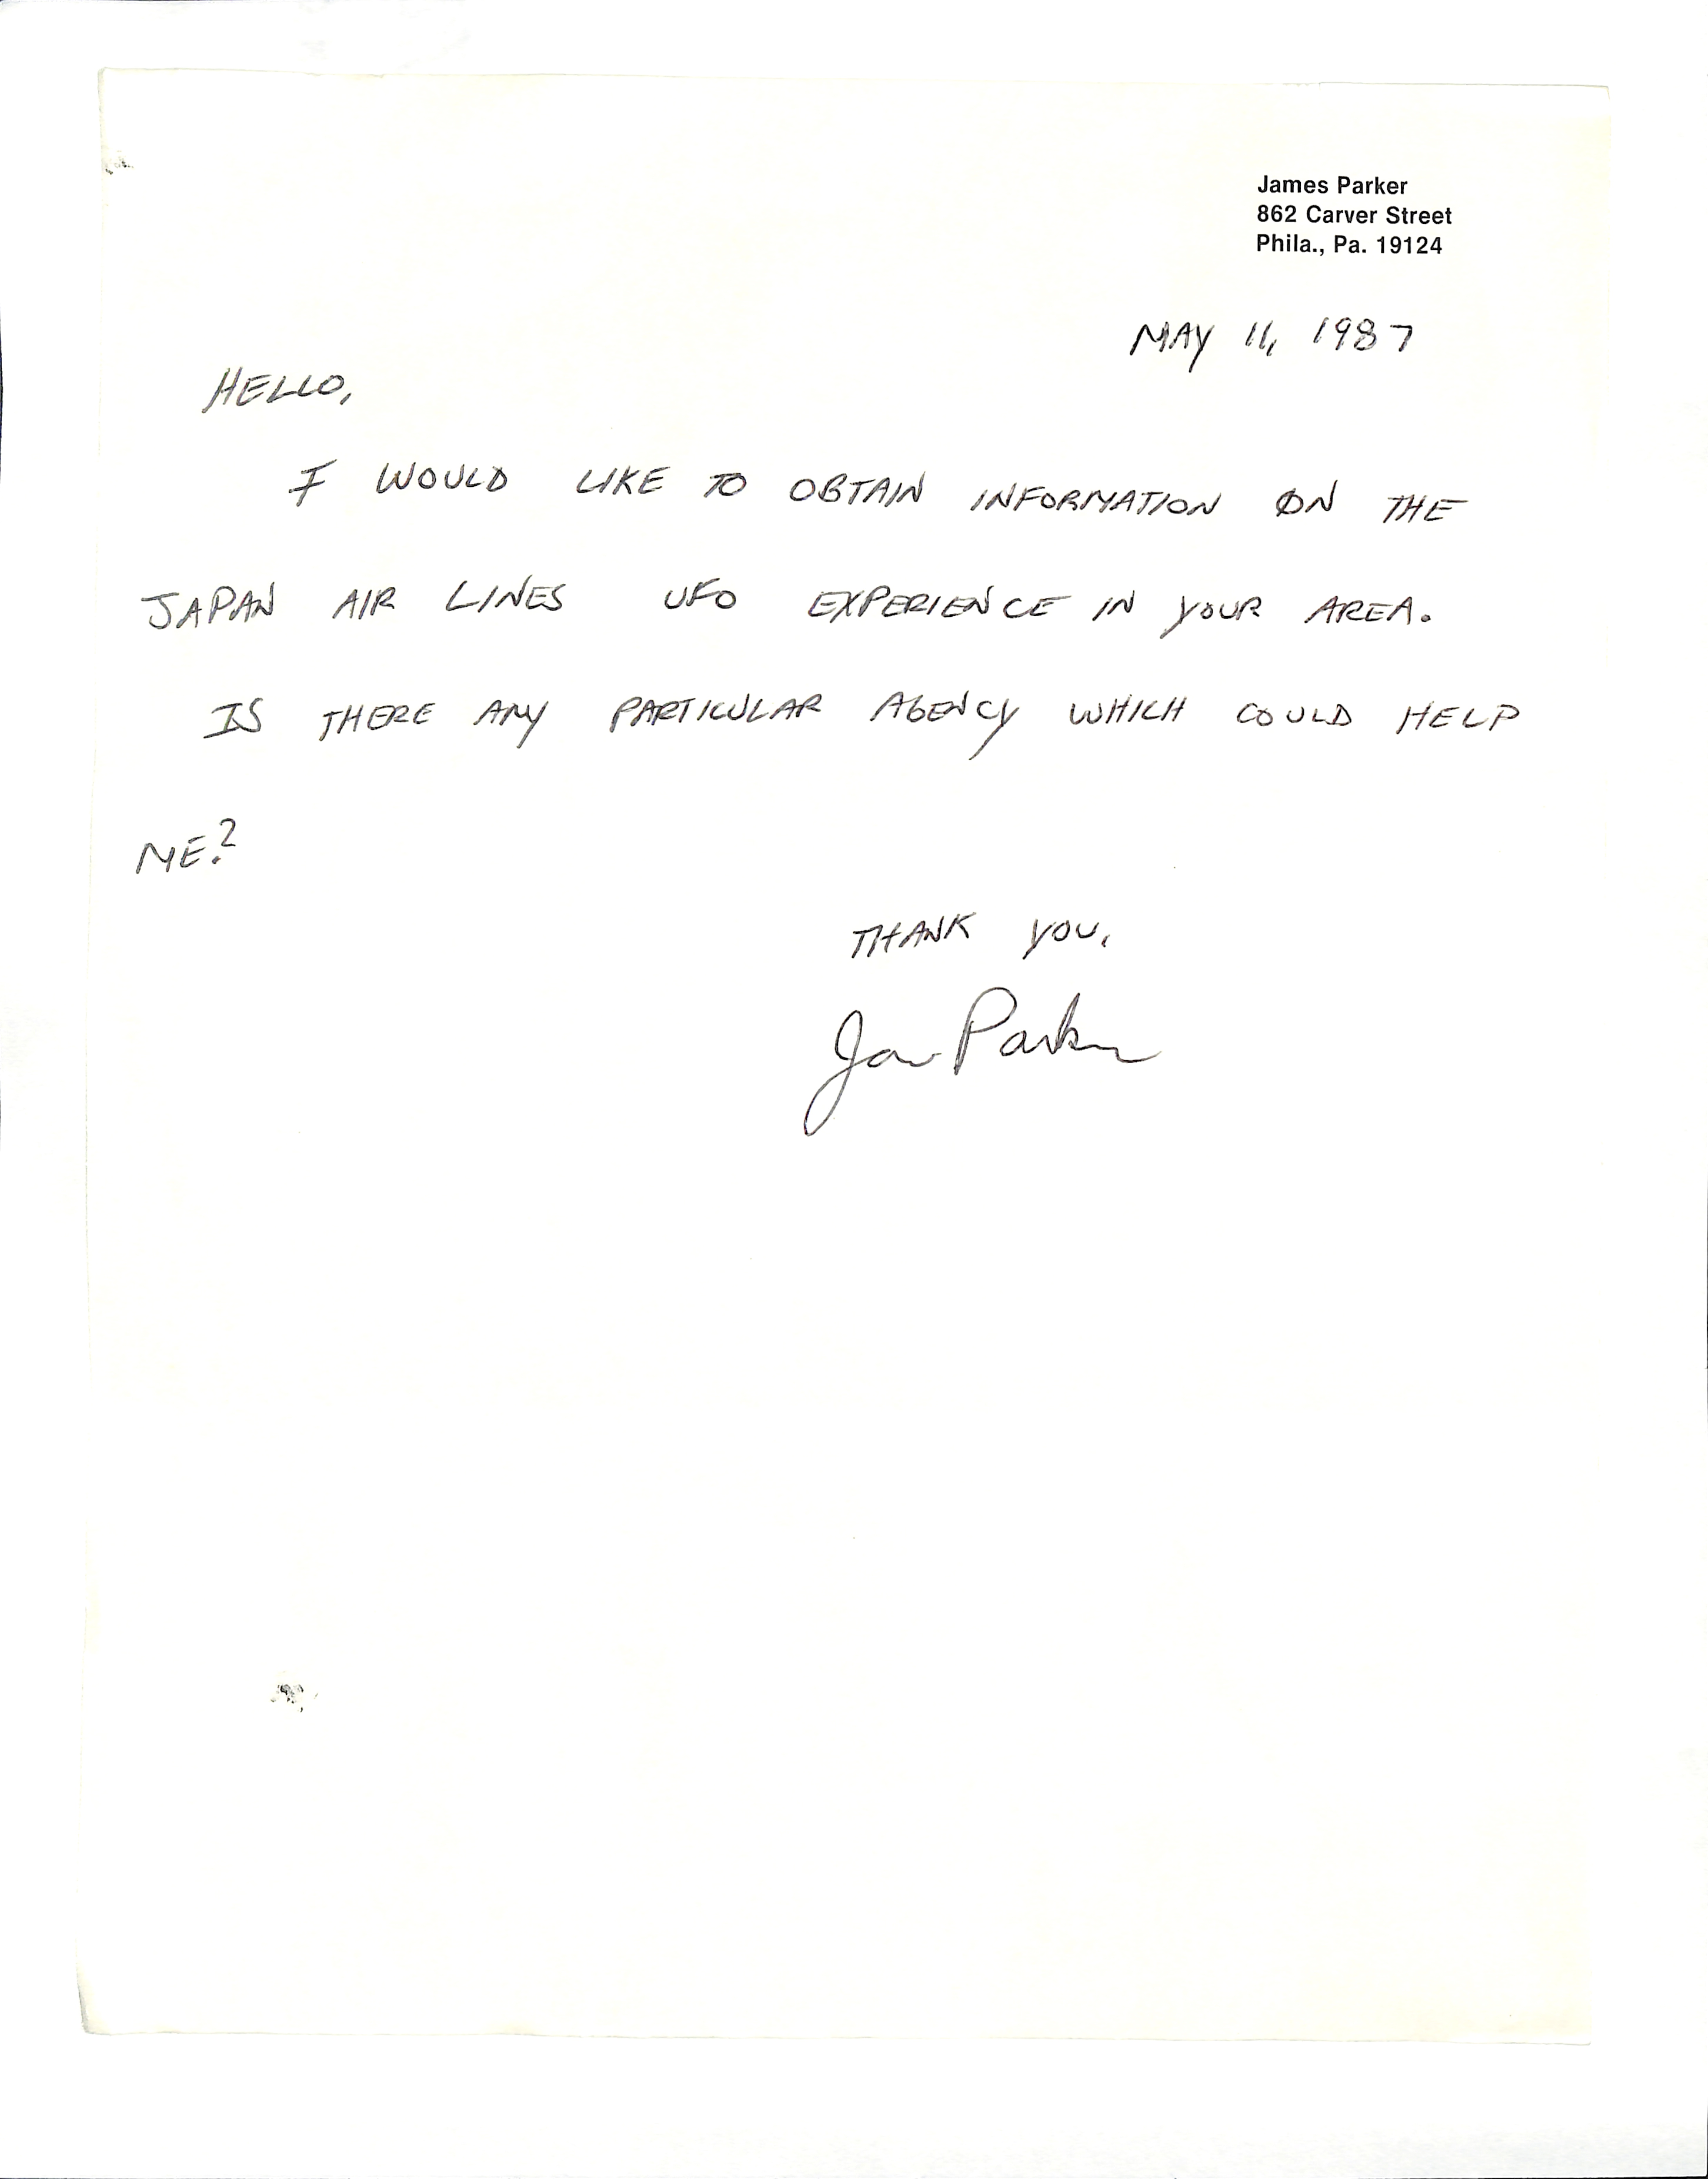 James Parker
862 Carver Street
Phila., Pa. 19124
MAY 11, 1987
HELLO,
I WOULD LIKE TO OBTAIN INFORMATION ON THE
JAPAN AIR LINES UFO EXPERIENCE IN YOUR AREA.
IS THERE ANY PARTICULAR AGENCY WHICH COULD HELP
ME?
THANK YOU,
Parker